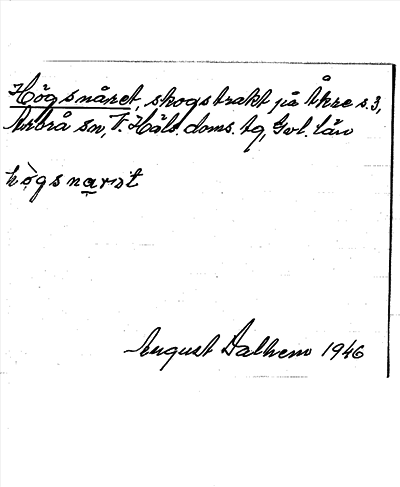 Högsnåret, skogstrakt på Åkre s. 3,
Arbrå sn, V. Häls. doms. tg, Gvl. län
hògsnarət
August Dalhem 1946